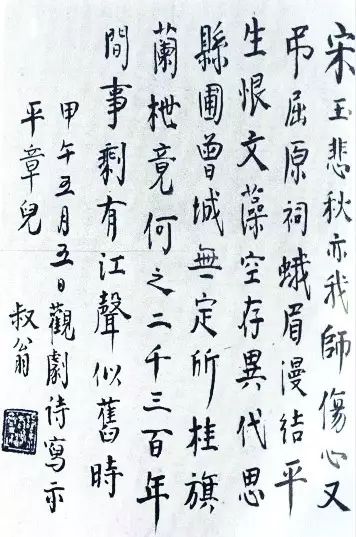 宋玉悲秋亦我師傷心又
吊屈原祠蛾眉漫结平
生恨文藻空存異代思
縣圃曾城無定所桂旗
蘭枻竟何之二千三百年
間事剩有江聲似舊時
甲午五月五日觀劇诗寫示
平章兒
叔翁